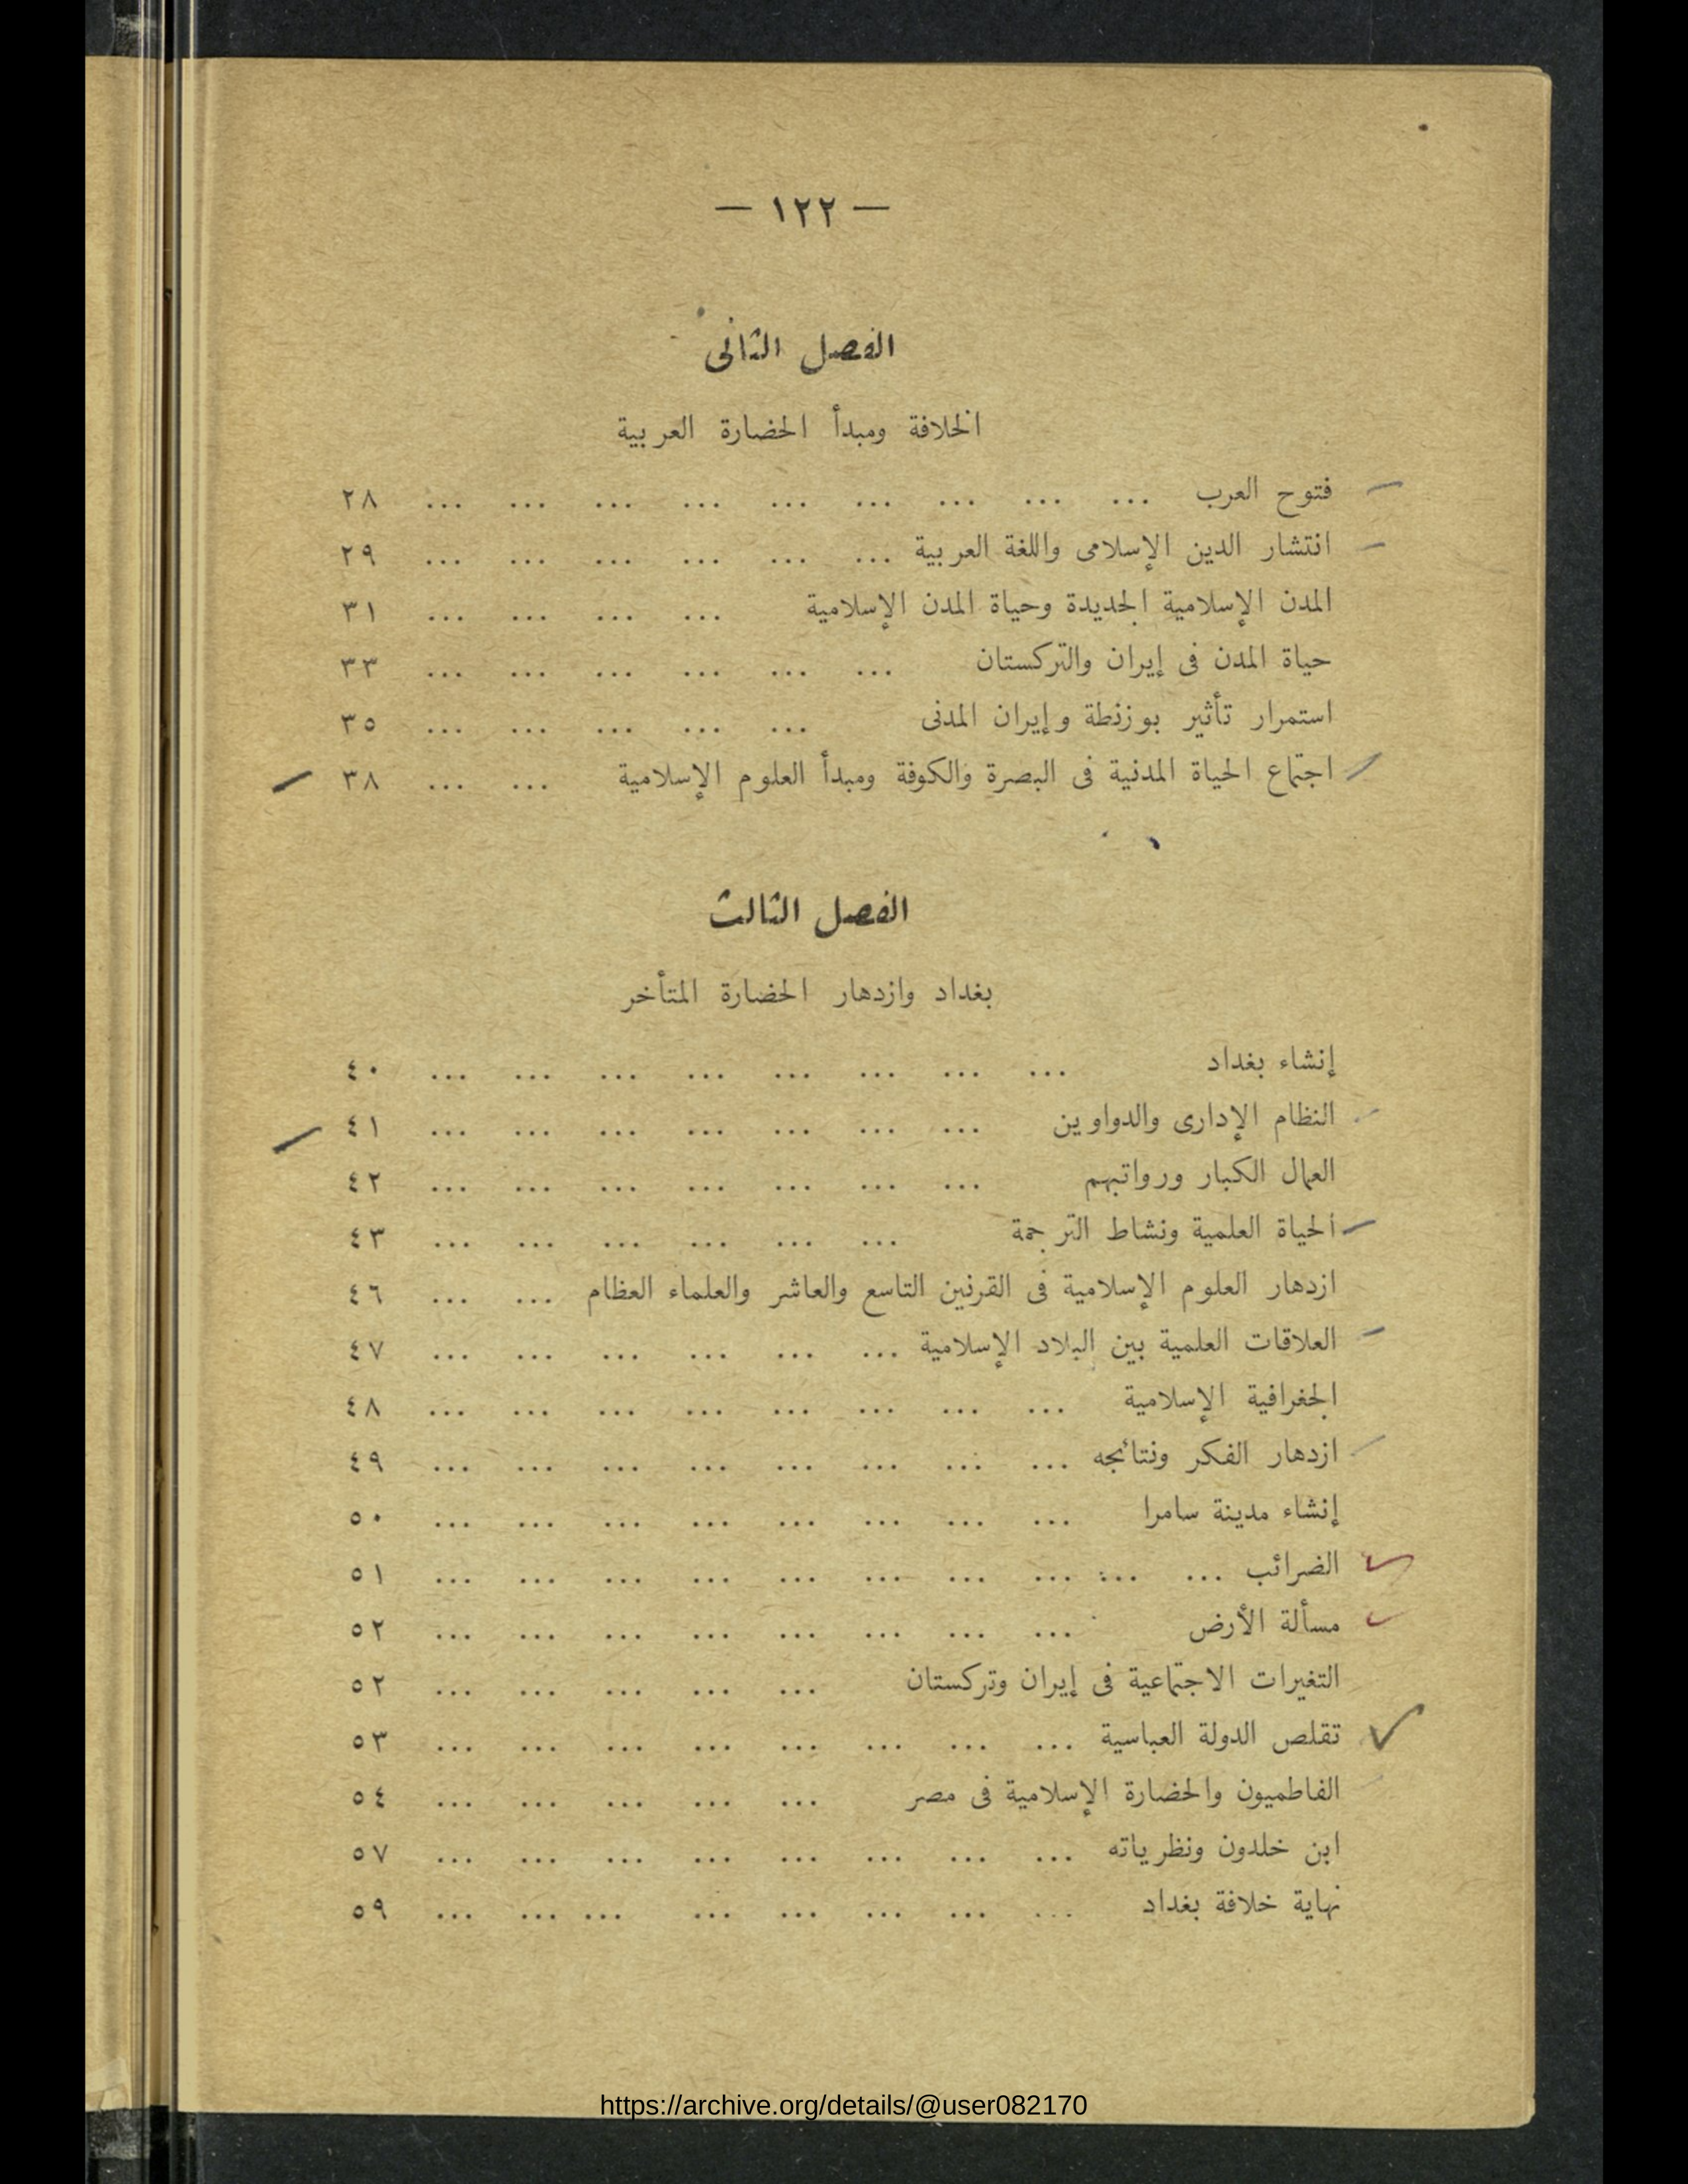 — ١٢٢ —
الفصل الثانى
الخلافة ومبدأ الحضارة العربية
فتوح العرب ... ... ... ... ... ... ... ... ... ٢٨
انتشار الدين الإسلامى واللغة العربية ... ... ... ... ... ... ٢٩
المدن الإسلامية الجديدة وحياة المدن الإسلامية ... ... ... ... ٣١
حياة المدن فى إيران والتركستان ... ... ... ... ... ... ٣٣
استمرار تأثير بوزنطة وإيران المدنى ... ... ... ... ... ٣٥
اجتماع الحياة المدنية فى البصرة والكوفة ومبدأ العلوم الإسلامية ... ... ٣٨
الفصل الثالث
بغداد وازدهار الحضارة المتأخر
إنشاء بغداد ... ... ... ... ... ... ... ... ٤٠
النظام الإدارى والدواوين ... ... ... ... ... ... ... ٤١
العمال الكبار ورواتبهم ... ... ... ... ... ... ... ٤٢
الحياة العلمية ونشاط الترجمة ... ... ... ... ... ... ٤٣
ازدهار العلوم الإسلامية فى القرنين التاسع والعاشر والعلماء العظام ... ... ٤٦
العلاقات العلمية بين البلاد الإسلامية ... ... ... ... ... ... ٤٧
الجغرافية الإسلامية ... ... ... ... ... ... ... ... ٤٨
ازدهار الفكر ونتائجه ... ... ... ... ... ... ... ... ٤٩
إنشاء مدينة سامرا ... ... ... ... ... ... ... ... ٥٠
الضرائب ... ... ... ... ... ... ... ... ... ... ٥١
مسألة الأرض ... ... ... ... ... ... ... ... ٥٢
التغيرات الاجتماعية فى إيران وتركستان ... ... ... ... ... ٥٢
تقلص الدولة العباسية ... ... ... ... ... ... ... ... ٥٣
الفاطميون والحضارة الإسلامية فى مصر ... ... ... ... ... ٥٤
ابن خلدون ونظرياته ... ... ... ... ... ... ... ... ٥٧
نهاية خلافة بغداد ... ... ... ... ... ... ... ... ٥٩
https://archive.org/details/@user082170